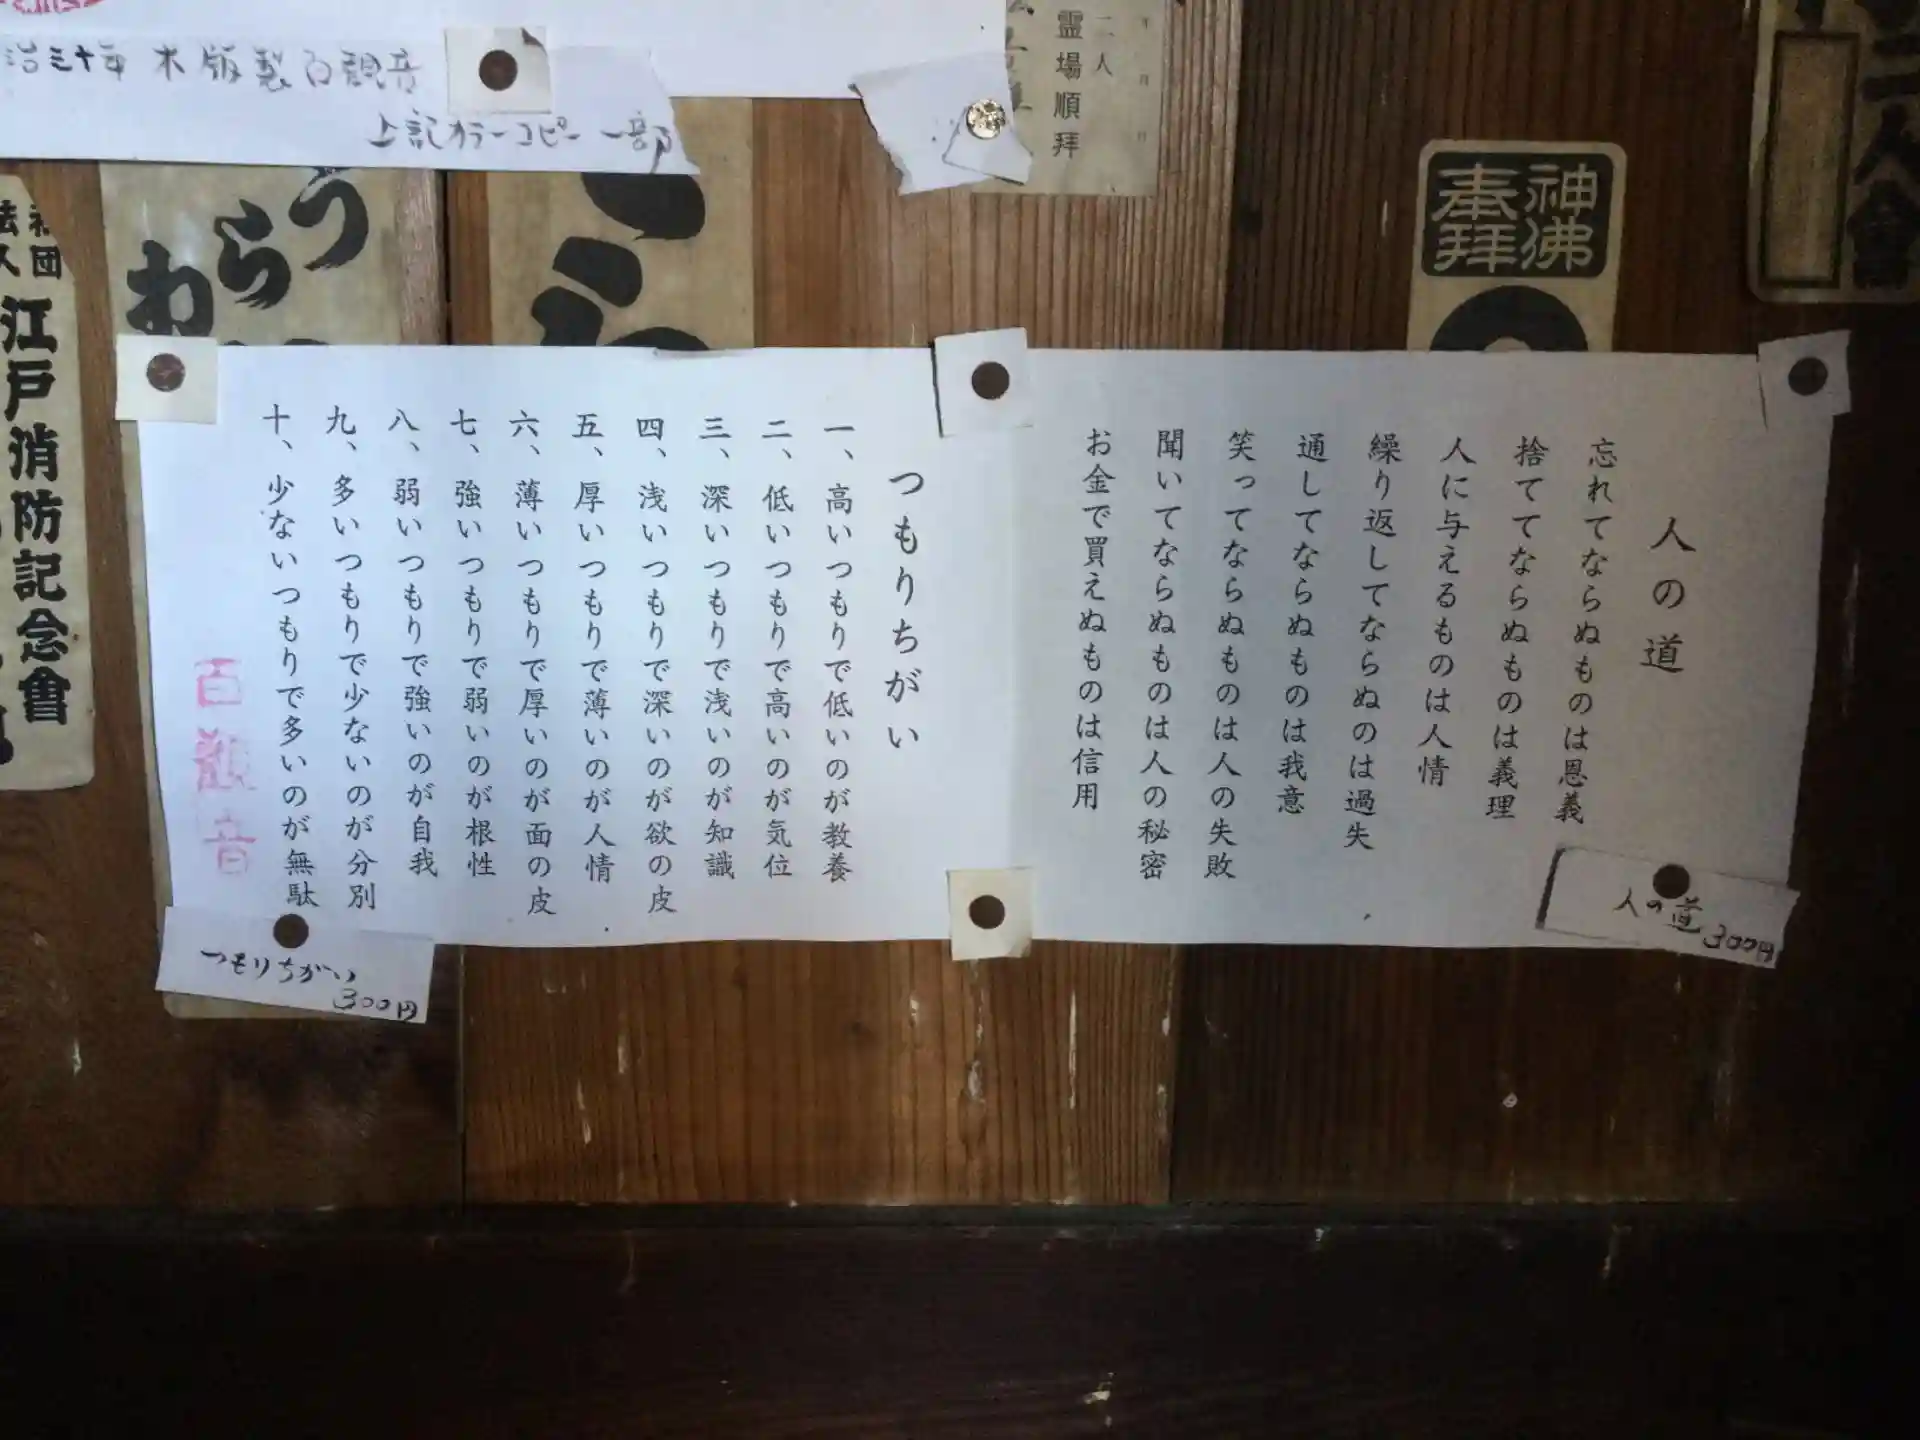 木版製百観音
上記カラーコピー一部
霊場順拝
二人
神佛
奉拝
社団
法人
江戸消防記念會
うらわ
人の道
忘れてならぬものは恩義
捨ててならぬものは義理
人に与えるものは人情
繰り返してならぬのは過失
通してならぬものは我意
笑ってならぬものは人の失敗
聞いてならぬものは人の秘密
お金で買えぬものは信用
人の道
300円
つもりちがい
一、高いつもりで低いのが教養
二、低いつもりで高いのが気位
三、深いつもりで浅いのが知識
四、浅いつもりで深いのが欲の皮
五、厚いつもりで薄いのが人情
六、薄いつもりで厚いのが面の皮
七、強いつもりで弱いのが根性
八、弱いつもりで強いのが自我
九、多いつもりで少ないのが分別
十、少ないつもりで多いのが無駄
百観音
つもりちがい
300円